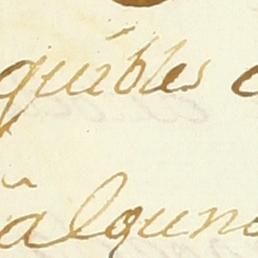 quibles
algun